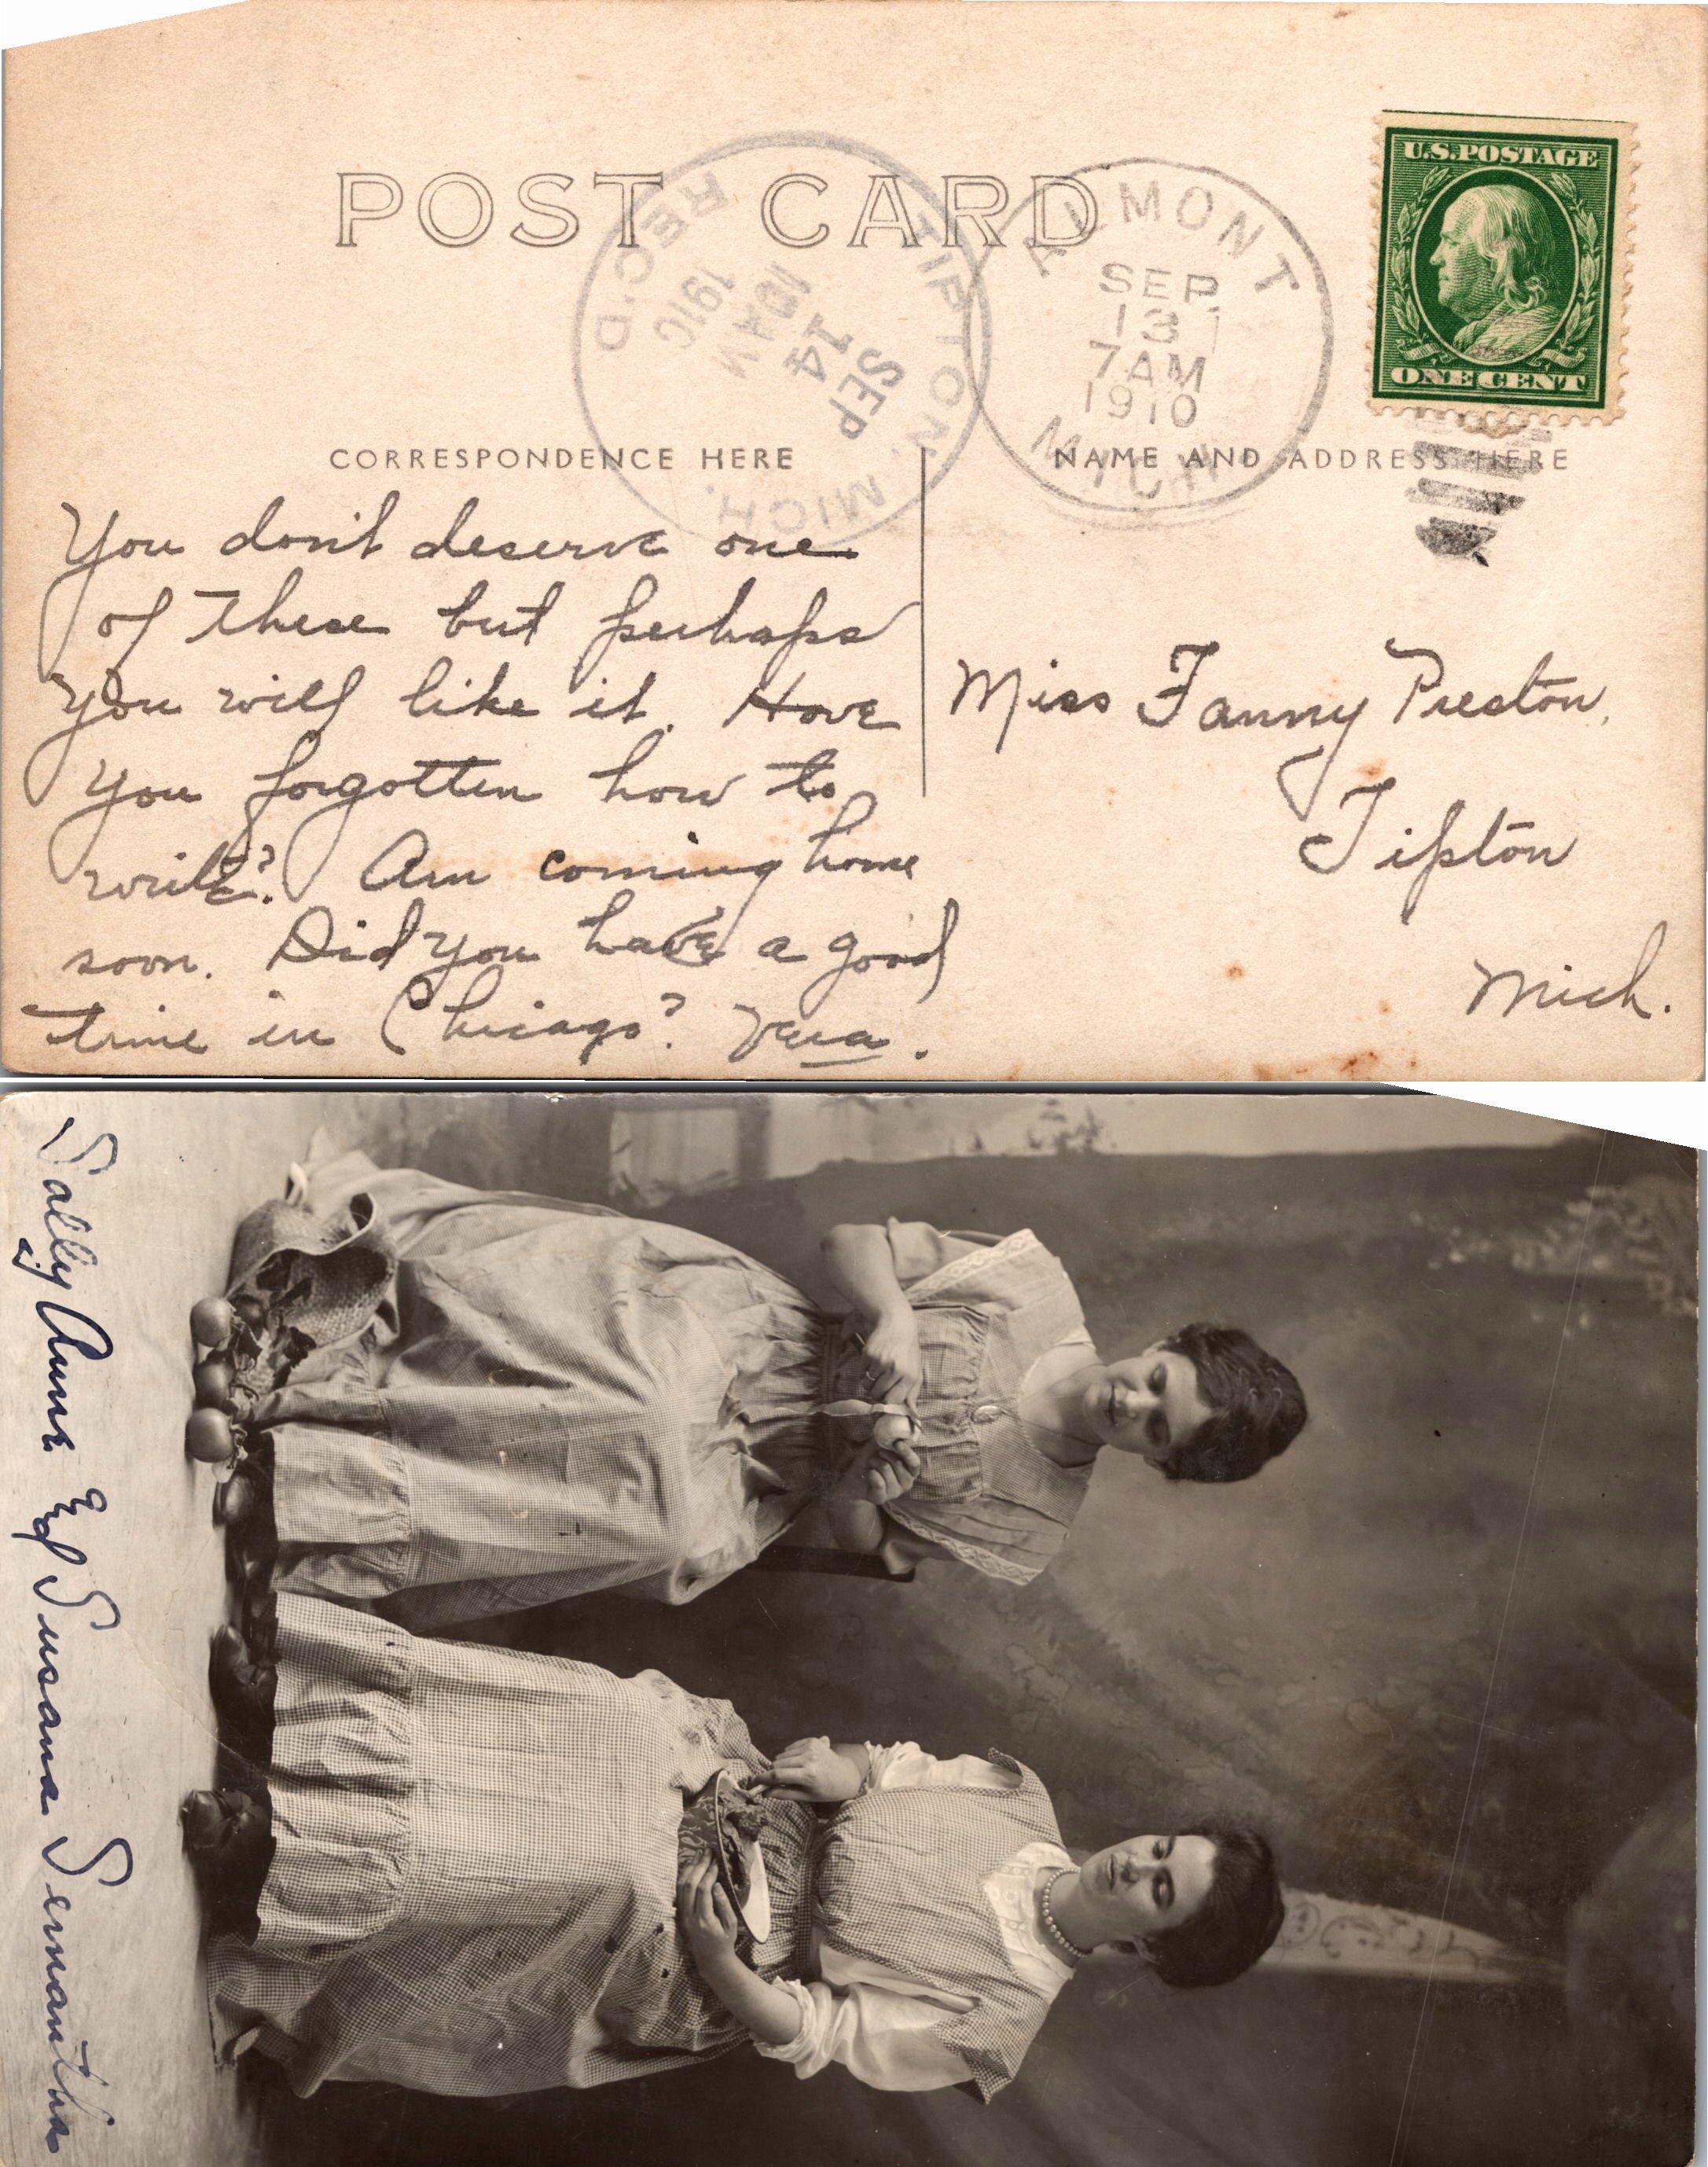 POST CARD
TIPTON, MICH.
SEP
14
10 AM
1910
REC'D
ALMONT
SEP
13
7 AM
1910
MICH
U.S. POSTAGE
ONE CENT
CORRESPONDENCE HERE
NAME AND ADDRESS HERE
You don't deserve one
of these but perhaps
you will like it. Have
you forgotten how to
write? Am coming home
soon. Did you have a good
time in Chicago? Vera.
Miss Fanny Preston,
Tipton
Mich.
Sally Ann & Susana Semantha